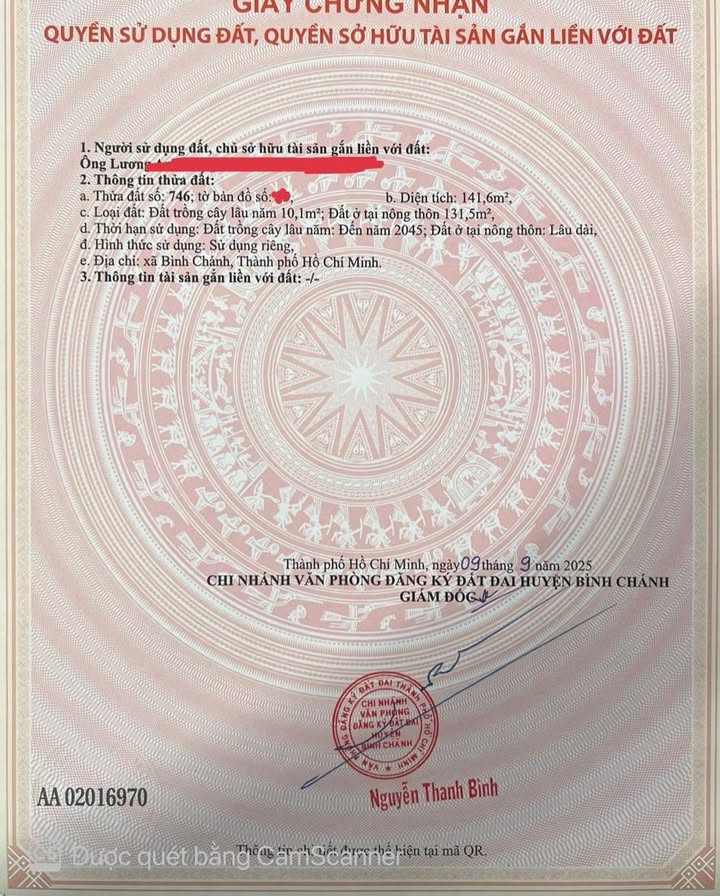 GIẤY CHỨNG NHẬN
QUYỀN SỬ DỤNG ĐẤT, QUYỀN SỞ HỮU TÀI SẢN GẮN LIỀN VỚI ĐẤT
1. Người sử dụng đất, chủ sở hữu tài sản gắn liền với đất:
Ông Lương
2. Thông tin thửa đất:
a. Thửa đất số: 746; tờ bản đồ số: , b. Diện tích: 141,6m²,
c. Loại đất: Đất trồng cây lâu năm 10,1m²; Đất ở tại nông thôn 131,5m²,
d. Thời hạn sử dụng: Đất trồng cây lâu năm: Đến năm 2045; Đất ở tại nông thôn: Lâu dài,
đ. Hình thức sử dụng: Sử dụng riêng,
e. Địa chỉ: xã Bình Chánh, Thành phố Hồ Chí Minh.
3. Thông tin tài sản gắn liền với đất: -/-
Thành phố Hồ Chí Minh, ngày 09 tháng 9 năm 2025
CHI NHÁNH VĂN PHÒNG ĐĂNG KÝ ĐẤT ĐAI HUYỆN BÌNH CHÁNH
GIÁM ĐỐC
VĂN PHÒNG ĐĂNG KÝ ĐẤT ĐAI THÀNH PHỐ HỒ CHÍ MINH
CHI NHÁNH
VĂN PHÒNG
ĐĂNG KÝ ĐẤT ĐAI
HUYỆN
BÌNH CHÁNH
Nguyễn Thanh Bình
AA 02016970
Thông tin chi tiết được thể hiện tại mã QR.
Được quét bằng CamScanner